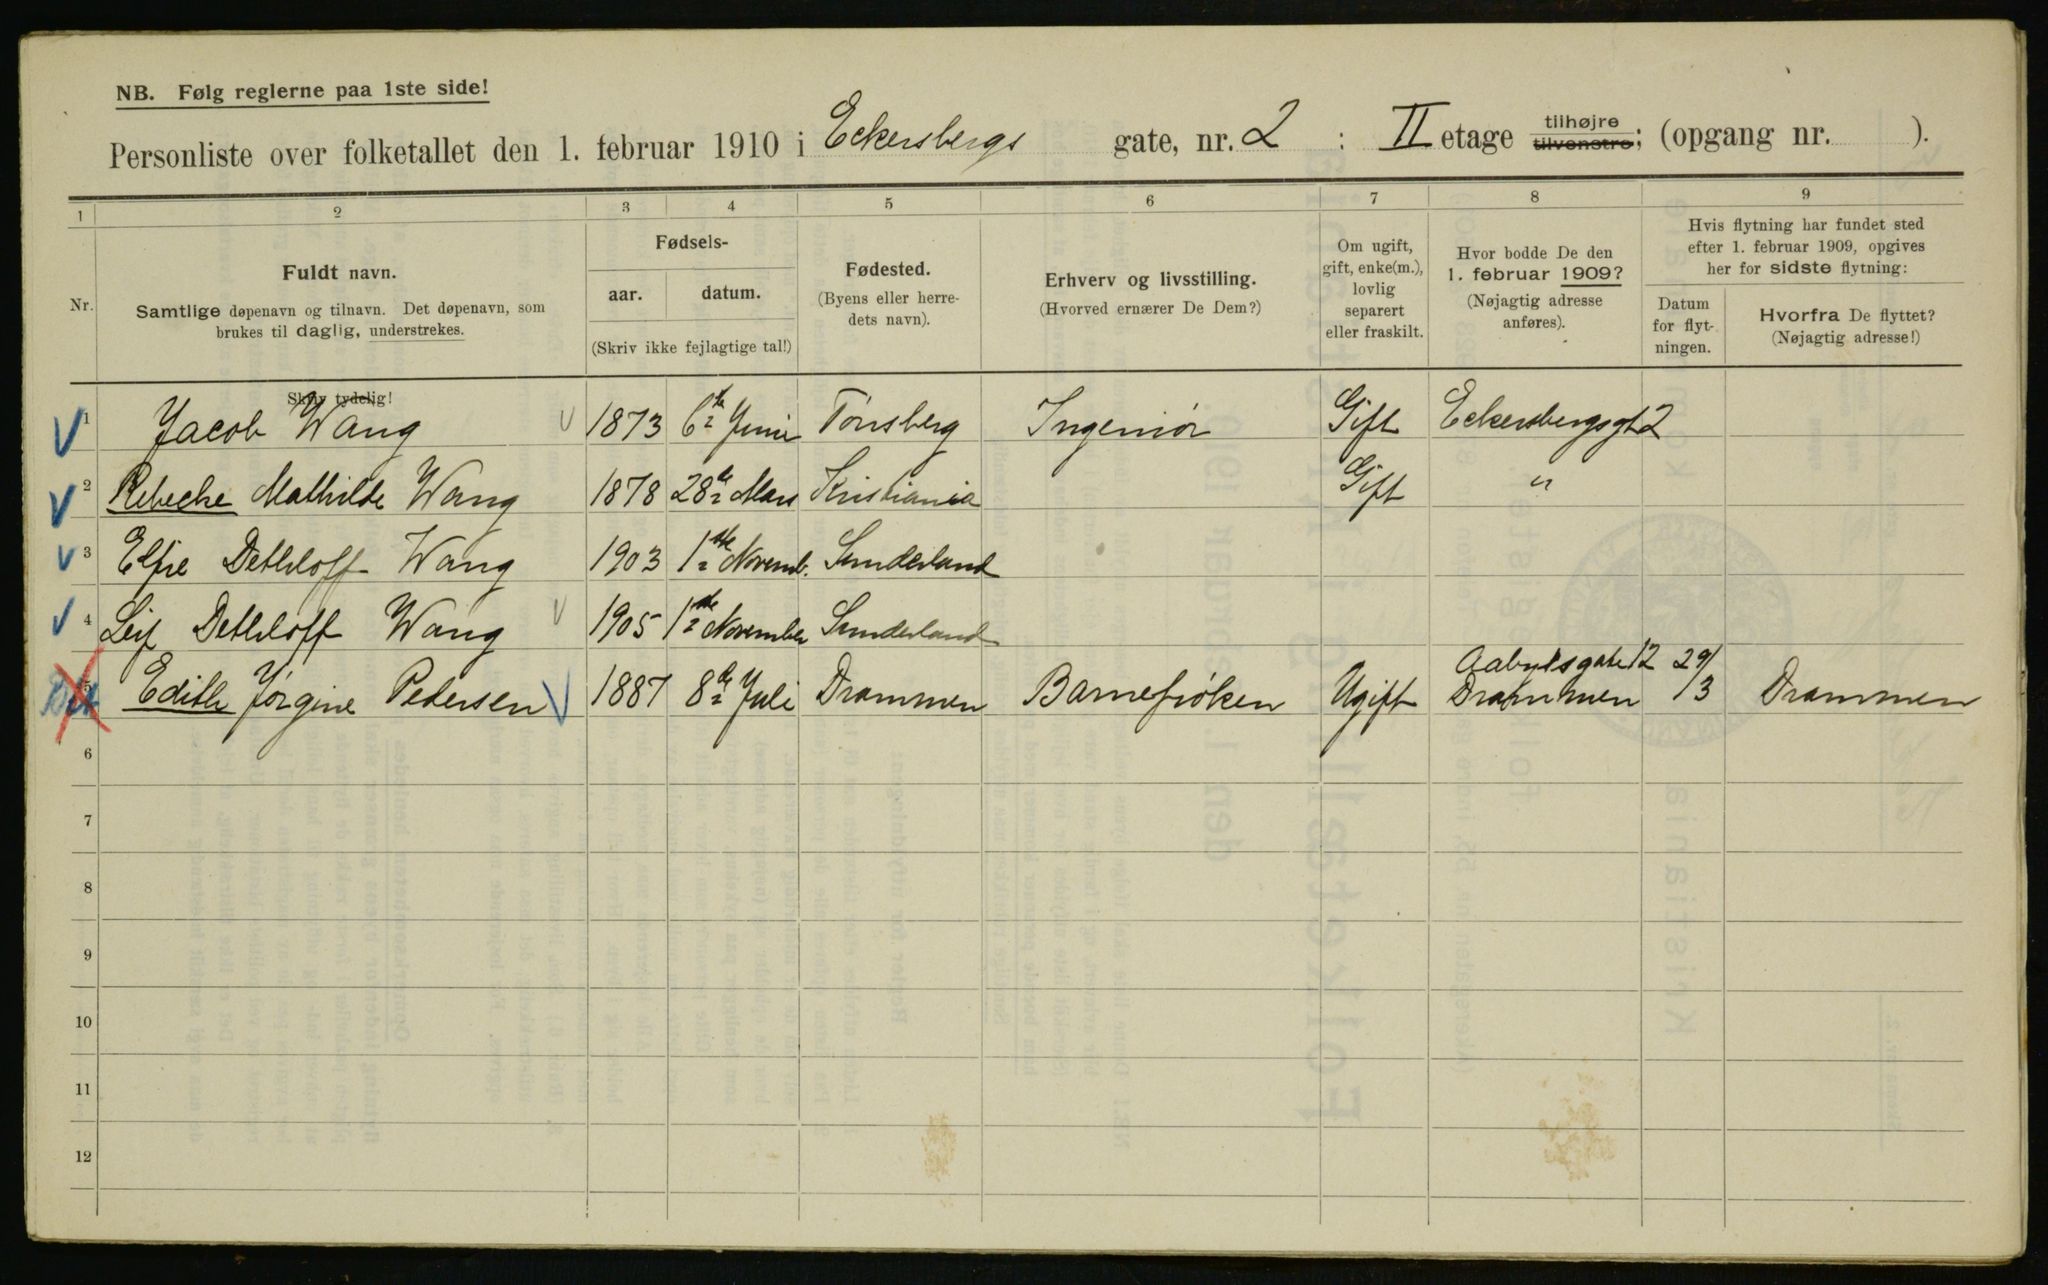 NB. Følg reglerne paa 1ste side!
Personliste over folketallet den 1. februar 1910 i Eckersbergs gate, nr. 2 : II etage tilhøjre tilvenstre; (opgang nr. ).
1 2 3 4 5 6 7 8 9
Nr.
Fuldt navn.
Samtlige døpenavn og tilnavn. Det døpenavn, som
brukes til daglig, understrekes.
Skriv tydelig!
Fødsels-
aar. datum.
(Skriv ikke fejlagtige tal!)
Fødested.
(Byens eller herre-
dets navn).
Erhverv og livsstilling.
(Hvorved ernærer De Dem?)
Om ugift,
gift, enke(m.),
lovlig
separert
eller fraskilt.
Hvor bodde De den
1. februar 1909?
(Nøjagtig adresse
anføres).
Hvis flytning har fundet sted
efter 1. februar 1909, opgives
her for sidste flytning:
Datum
for flyt-
ningen.
Hvorfra De flyttet?
(Nøjagtig adresse!)
1 Jacob Wang 1873 6te Juni Tønsberg Ingeniør Gift Eckersbergsgt 2
2 Rebecke Mathilde Wang 1878 28de Mars Kristiania Gift "
3 Elfie Dethloff Wang 1903 1ste Novemb. Sunderland
4 Leif Dethloff Wang 1905 1ste November Sunderland
5 Edith Jørgine Pedersen 1887 8de Juli Drammen Barnefrøken Ugift Drammen 29/3 Drammen
6
7
8
9
10
11
12